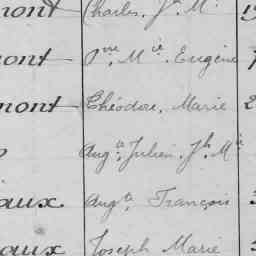 mont Charles, Jh Mie
mont Pre Mie Eugène
mont Théodore, Marie 2
Augte Julien Jh Mie
aux Augte François
aux Joseph Marie